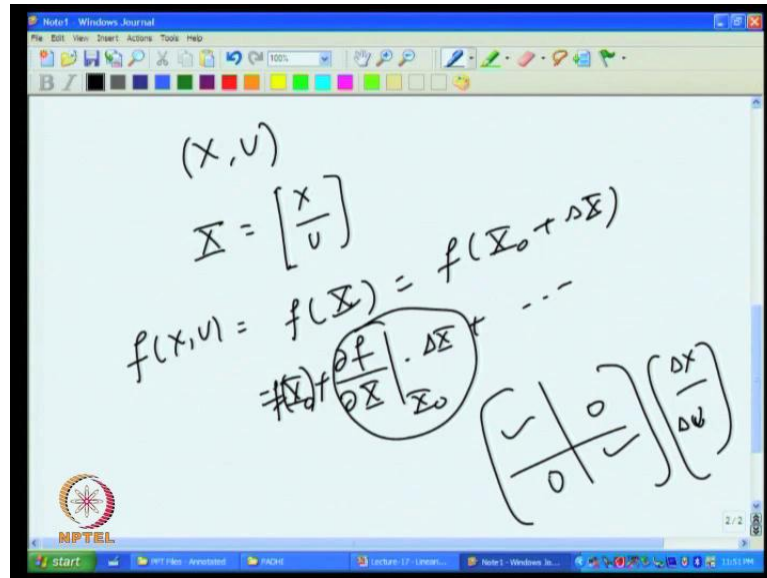 Note1 - Windows Journal
File Edit View Insert Actions Tools Help
100%
B I
(X, U)
X̄ = [X / U]
f(X, U) = f(X̄) = f(X̄₀ + ΔX̄)
= f(X̄₀) + ∂f/∂X̄ |X̄₀ . ΔX̄ + ...
[✓ | 0
0 | ✓] [ΔX / ΔU]
NPTEL
2/2
start
PPT Files - Annotated
PADHI
Lecture-17 - Lineari...
Note1 - Windows Jo...
11:51 PM